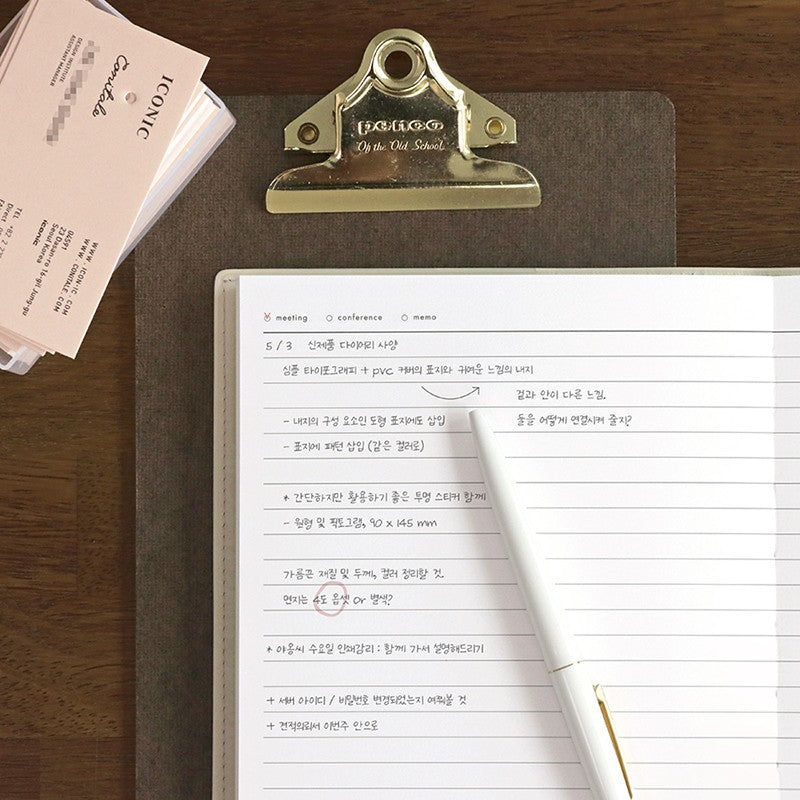 ICONIC
Contale
DESIGN INSTITUTE
ASSISTANT MANAGER
WWW. ICON-IC. COM
WWW. CONTALE. COM
04591
23 Dasan-ro 16-gil Jung-gu
Seoul Korea
iconic
TEL +82 2
Direct
penco
Of the Old School.
meeting conference memo
5 / 3 신제품 다이어리 사양
심플 타이포그래피 + pvc 커버의 표지와 귀여운 느낌의 내지
겉과 안이 다른 느낌.
- 내지의 구성 요소인 도형 표지에도 삽입
둘을 어떻게 연결시켜 줄지?
- 표지에 패턴 삽입 (같은 컬러로)
* 간단하지만 활용하기 좋은 투명 스티커 함께
- 원형 및 픽토그램, 90 x 145 mm
가름끈 재질 및 두께, 컬러 정리할 것.
면지는 4도 옵셋 or 별색?
* 야옹씨 수요일 인쇄감리 : 함께 가서 설명해드리기
+ 세버 아이디 / 비밀번호 변경되었는지 여쭤볼 것
+ 견적의뢰서 이번주 안으로